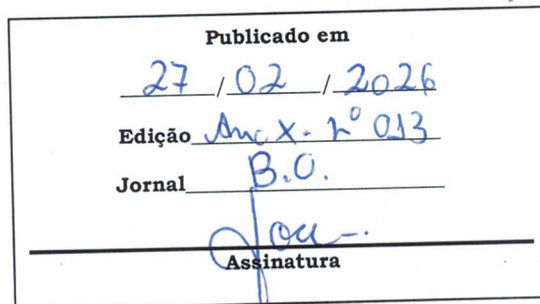 Publicado em
27 / 02 / 2026
Edição Ano X - Nº 013
Jornal B.O.
Assinatura